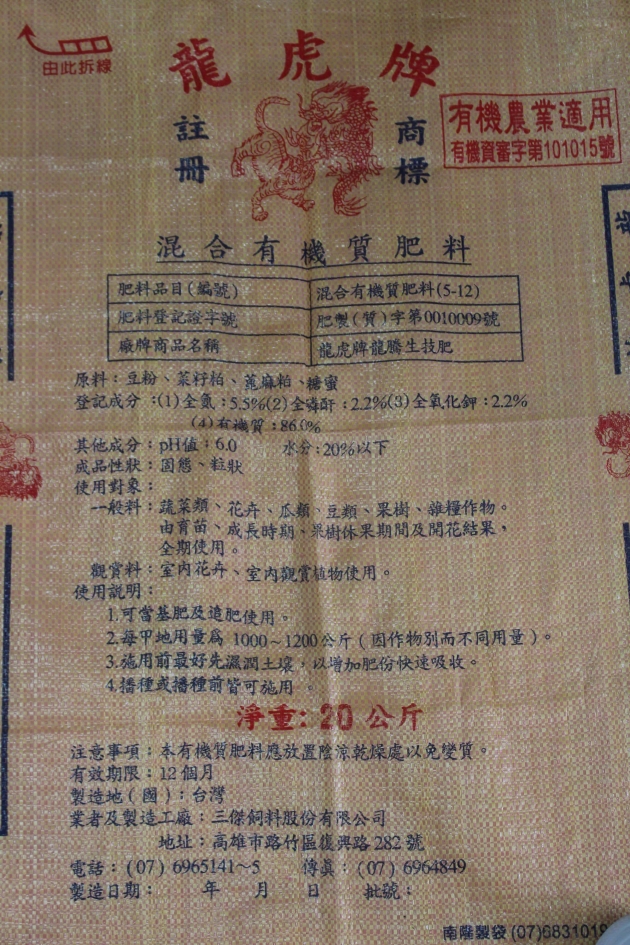 由此拆線
龍虎牌
註冊
商標
有機農業適用
有機資審字第101015號
混合有機質肥料
肥料品目(編號) 混合有機質肥料(5-12)
肥料登記證字號 肥製(質)字第0010009號
廠牌商品名稱 龍虎牌龍騰生技肥
原料：豆粉、菜籽粕、蓖麻粕、糖蜜
登記成分：(1)全氮：5.5%(2)全磷酐：2.2%(3)全氧化鉀：2.2%
(4)有機質：86.0%
其他成分：pH值：6.0 水分：20%以下
成品性狀：固態、粒狀
使用對象：
一般料：蔬菜類、花卉、瓜類、豆類、果樹、雜糧作物。
由育苗、成長時期、果樹休果期間及開花結果，
全期使用。
觀賞料：室內花卉、室內觀賞植物使用。
使用說明：
1.可當基肥及追肥使用。
2.每甲地用量為 1000~1200公斤（因作物別而不同用量）。
3.施用前最好先濕潤土壤，以增加肥份快速吸收。
4.播種或播種前皆可施用。
淨重：20公斤
注意事項：本有機質肥料應放置陰涼乾燥處以免變質。
有效期限：12個月
製造地（國）：台灣
業者及製造工廠：三傑飼料股份有限公司
地址：高雄市路竹區復興路282號
電話：(07) 6965141~5 傳真：(07) 6964849
製造日期： 年 月 日 批號：
南隆製袋 (07)6831019